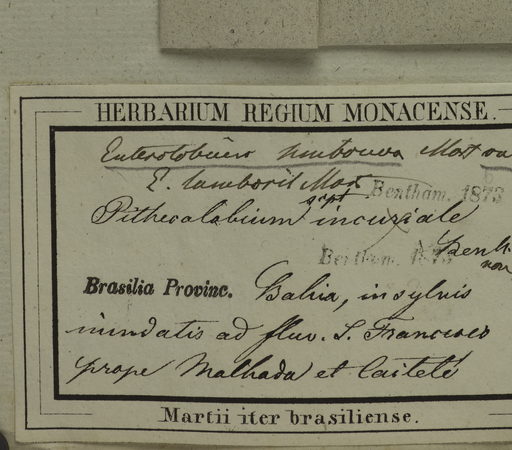 HERBARIUM REGIUM MONACENSE.
Enterolobium timbouva Mart va
E. tamboril Mart
Bentham. 1873
Pithecolobium incuriale
Benth.
non
Bentham. 1873
Brasilia Provinc. Bahia, in sylvis
inundatis ad fluv. S. Francisco
prope Malhada et Caiteté
Martii iter brasiliense.